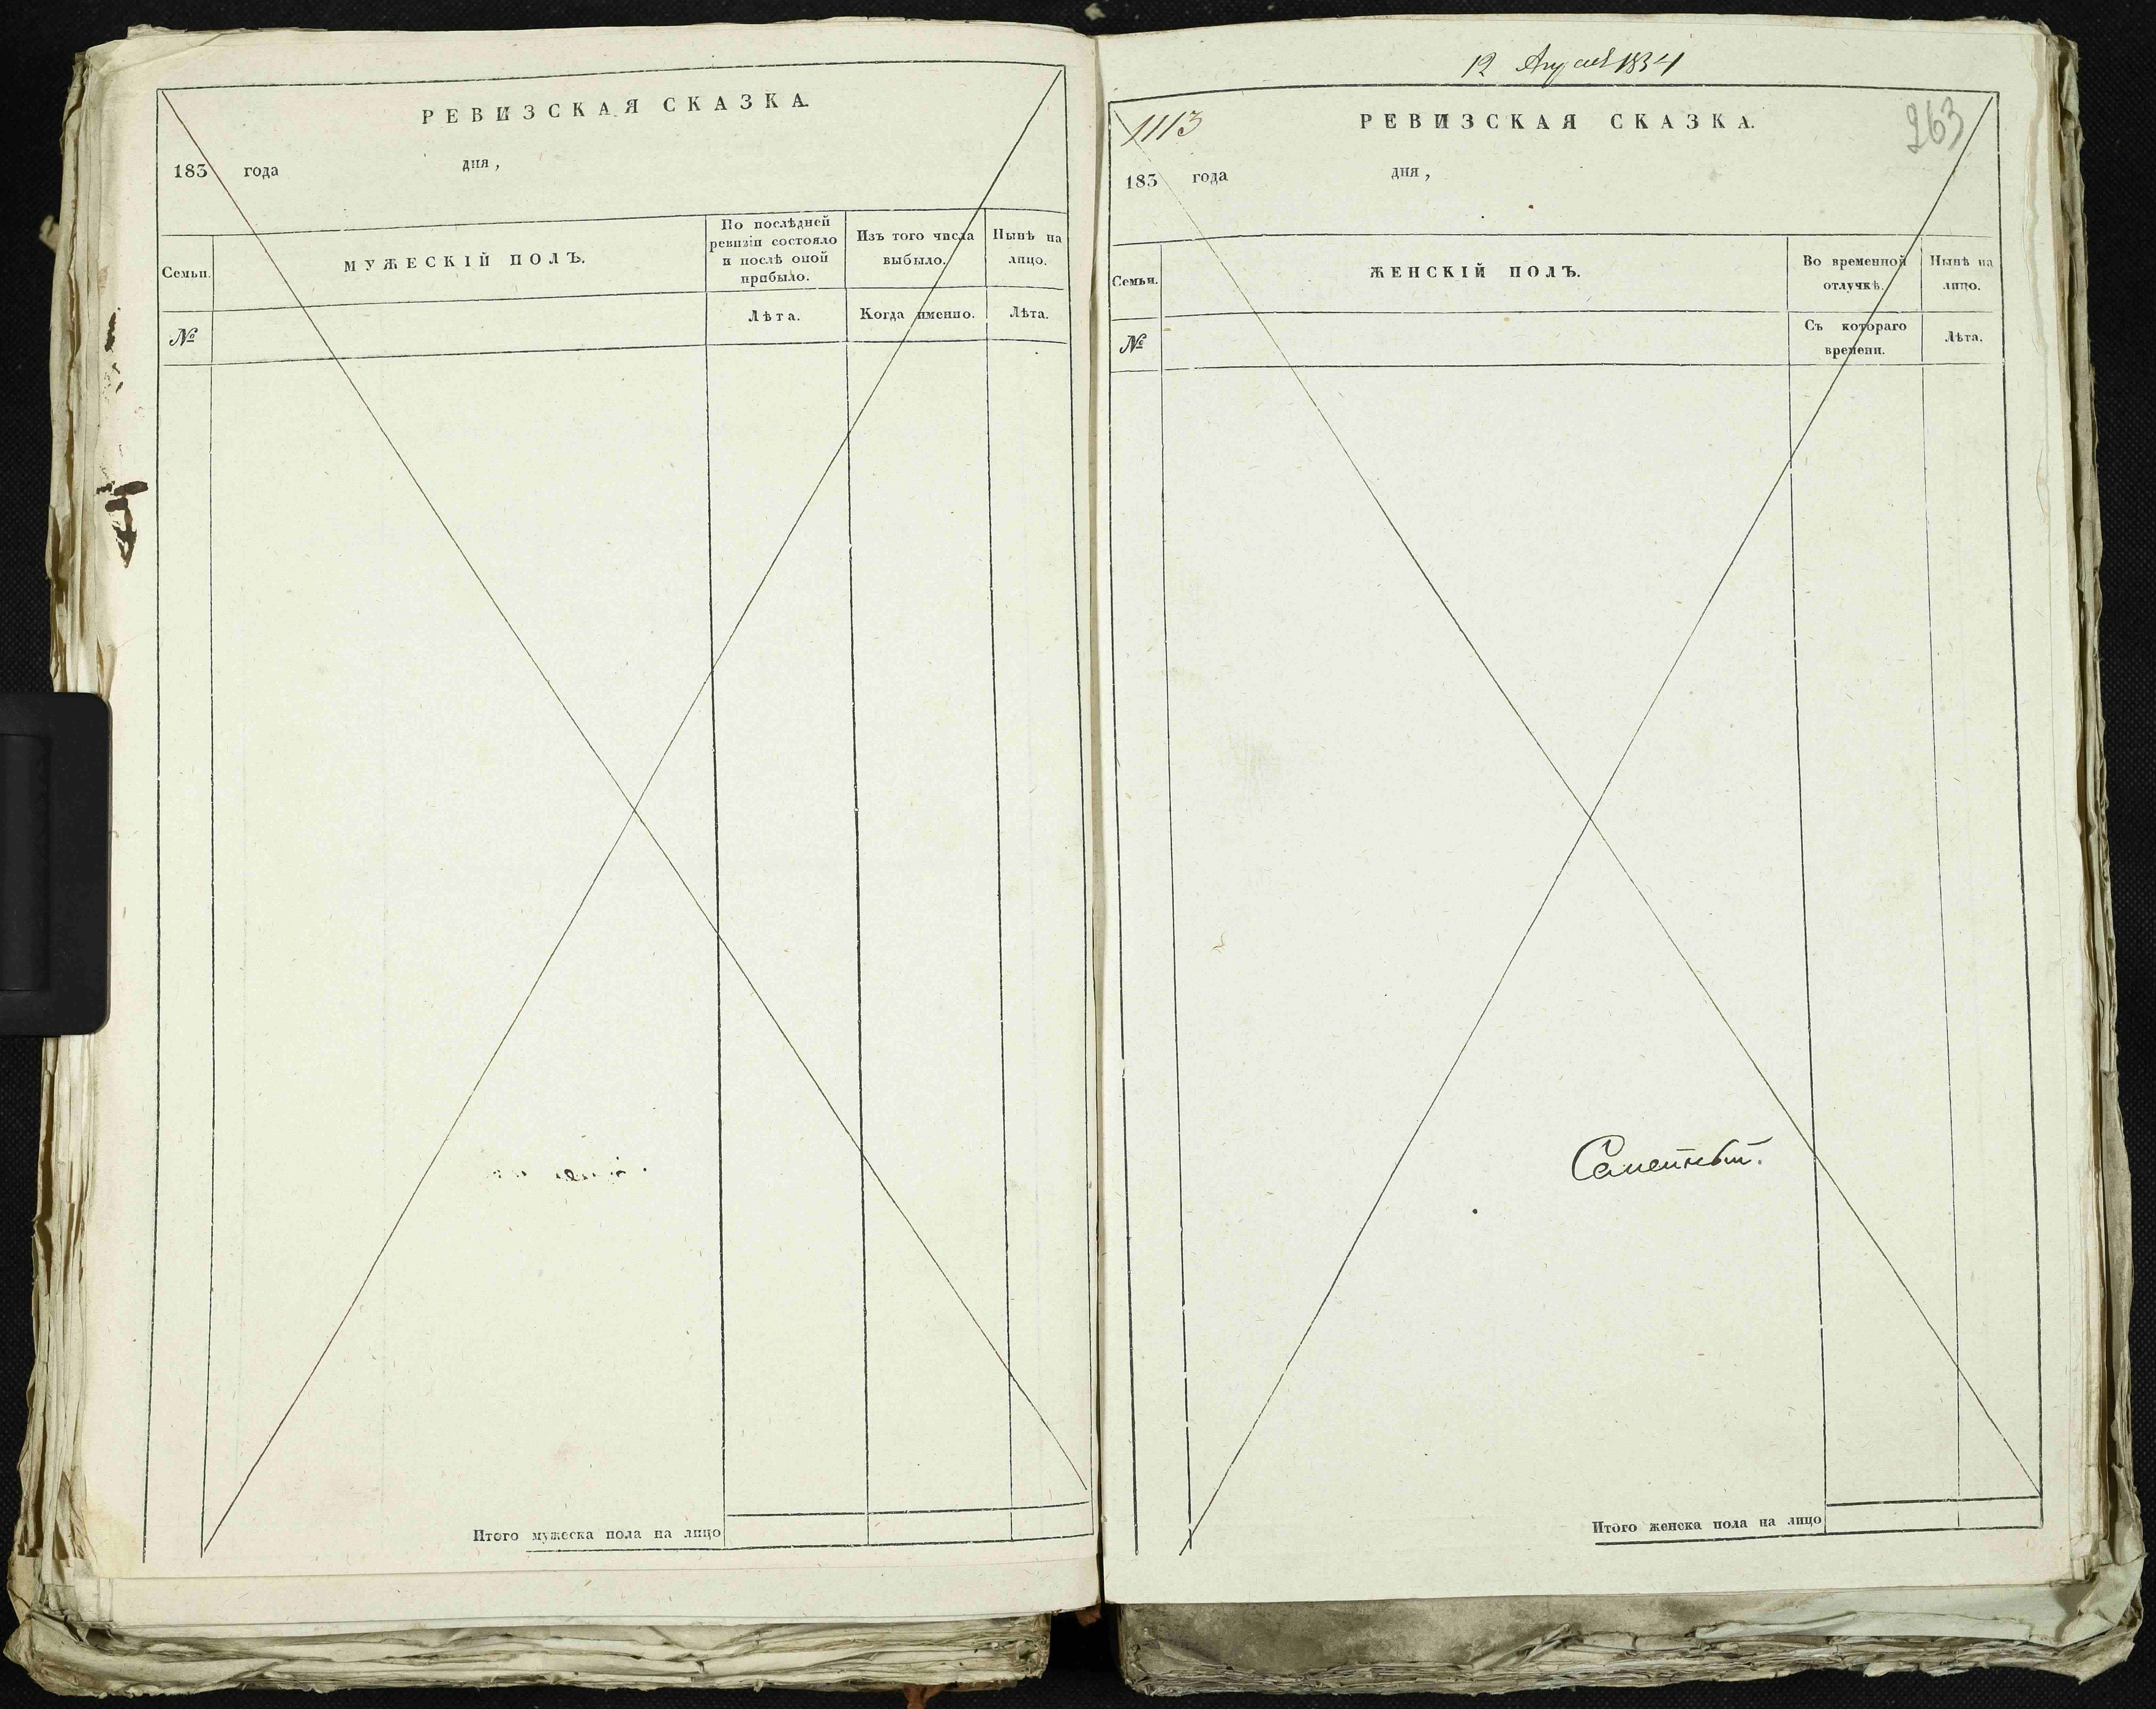 РЕВИЗСКАЯ СКАЗКА.
183 года дня,
Семьи.
МУЖЕСКІЙ ПОЛЪ.
По послѣдней
ревизіи состояло
и послѣ оной
прибыло.
Изъ того числа
выбыло.
Нынѣ на
лицо.
№
Лѣта.
Когда именно.
Лѣта.
Итого мужеска пола на лицо
12 1834
1113
РЕВИЗСКАЯ СКАЗКА.
263
183 года дня,
Семьи.
ЖЕНСКІЙ ПОЛЪ.
Во временной
отлучкѣ.
Нынѣ на
лицо.
№
Съ котораго
времени.
Лѣта.
Итого женска пола на лицо